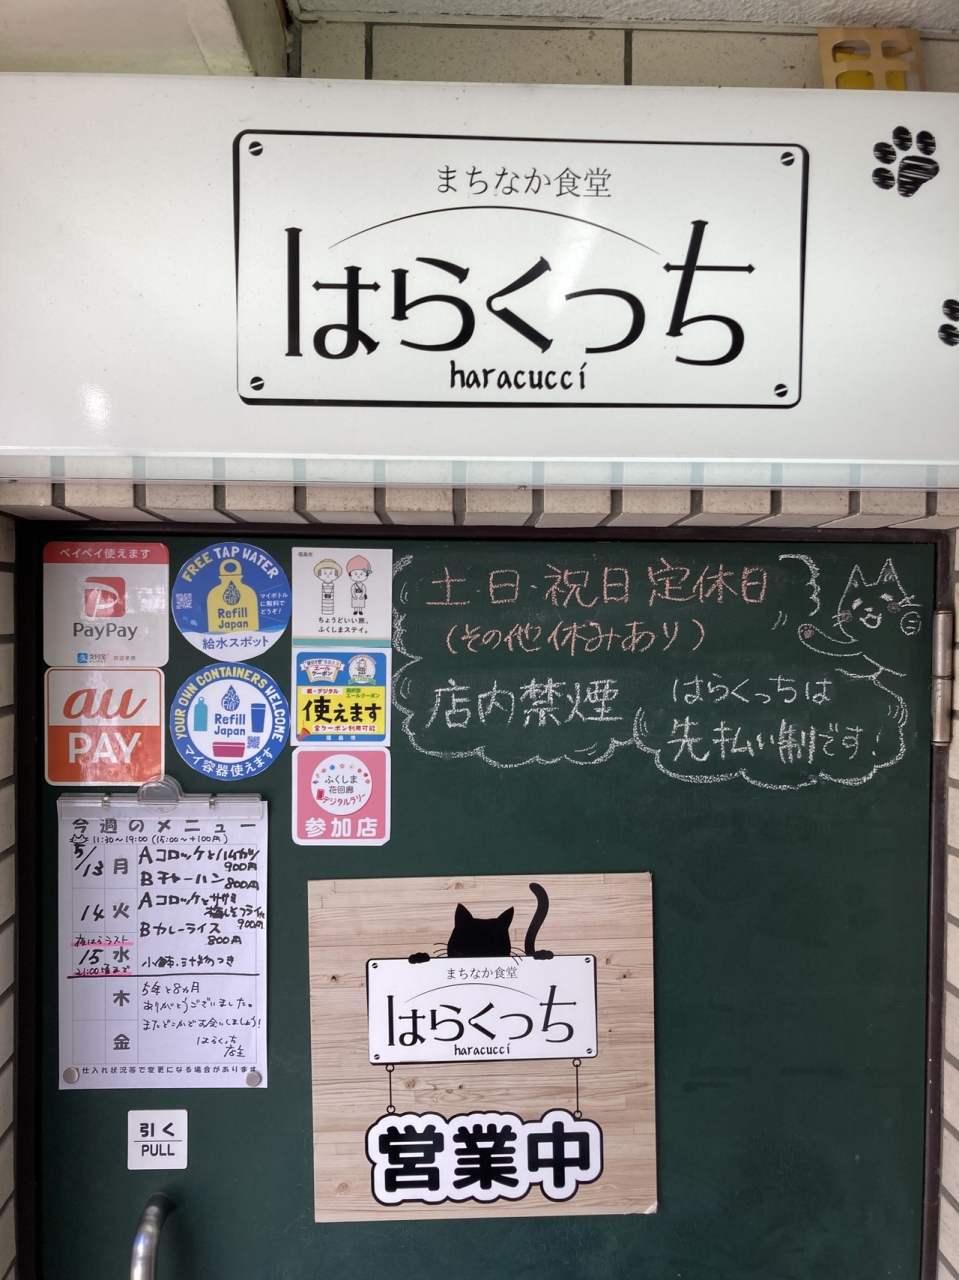 まちなか食堂
はらくっち
haracucci
ペイペイ使えます
PayPay
au
PAY
FREE TAP WATER
マイボトル
に無料で
どうぞ!
Refill
Japan
給水スポット
YOUR OWN CONTAINERS WELCOME
Refill
Japan
マイ容器使えます
福島市
ちょうどいい旅、
ふくしまステイ。
エール
クーポン
使えます
全クーポン利用可能
福島市
ふくしま
花回廊
デジタルラリー
参加店
土・日・祝日 定休日
(その他休みあり)
店内禁煙
はらくっちは
先払い制です!
今週のメニュー
11:30〜19:00 (15:00〜+100円)
5/13 月 Aコロッケとハムカツ
900円
Bチャーハン 800円
14 火 Aコロッケとササミ
梅しそフライ
900円
Bカレーライス
800円
夜はラスト
15 水 小鉢.汁物つき
21:00頃まで
木 5年と8ヵ月
ありがとうございました。
またどこかでお会いしましょう!
金 はらくっち
店主
仕入れ状況等で変更になる場合があります
まちなか食堂
はらくっち
haracucci
営業中
引く
PULL